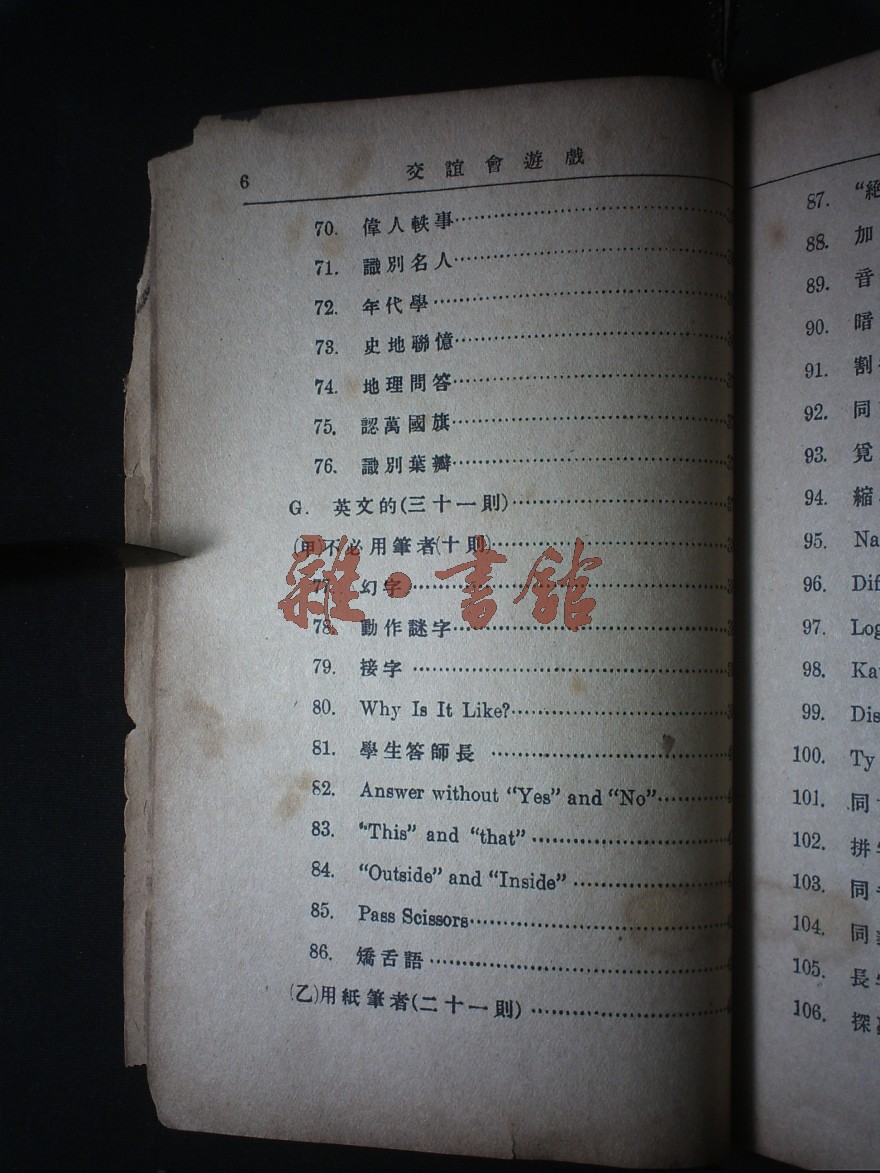 6 交誼會遊戲
70. 偉人軼事
71. 識別名人
72. 年代學
73. 史地聯憶
74. 地理問答
75. 認萬國旗
76. 識別葉瓣
G. 英文的(三十一則)
(甲)不必用筆者(十則)
77. 幻字
78. 動作謎字
79. 接字
80. Why Is It Like?
81. 學生答師長
82. Answer without “Yes” and “No”
83. “This” and “that”
84. “Outside” and “Inside”
85. Pass Scissors
86. 矯舌語
(乙)用紙筆者(二十一則)
雜·書館
87. “絕
88. 加
89. 音
90. 暗
91. 割
92. 同
93. 覓
94. 縮
95. Na
96. Dif
97. Log
98. Ka
99. Dis
100. Ty
101. 同
102. 拼
103. 同
104. 同
105. 長
106. 探